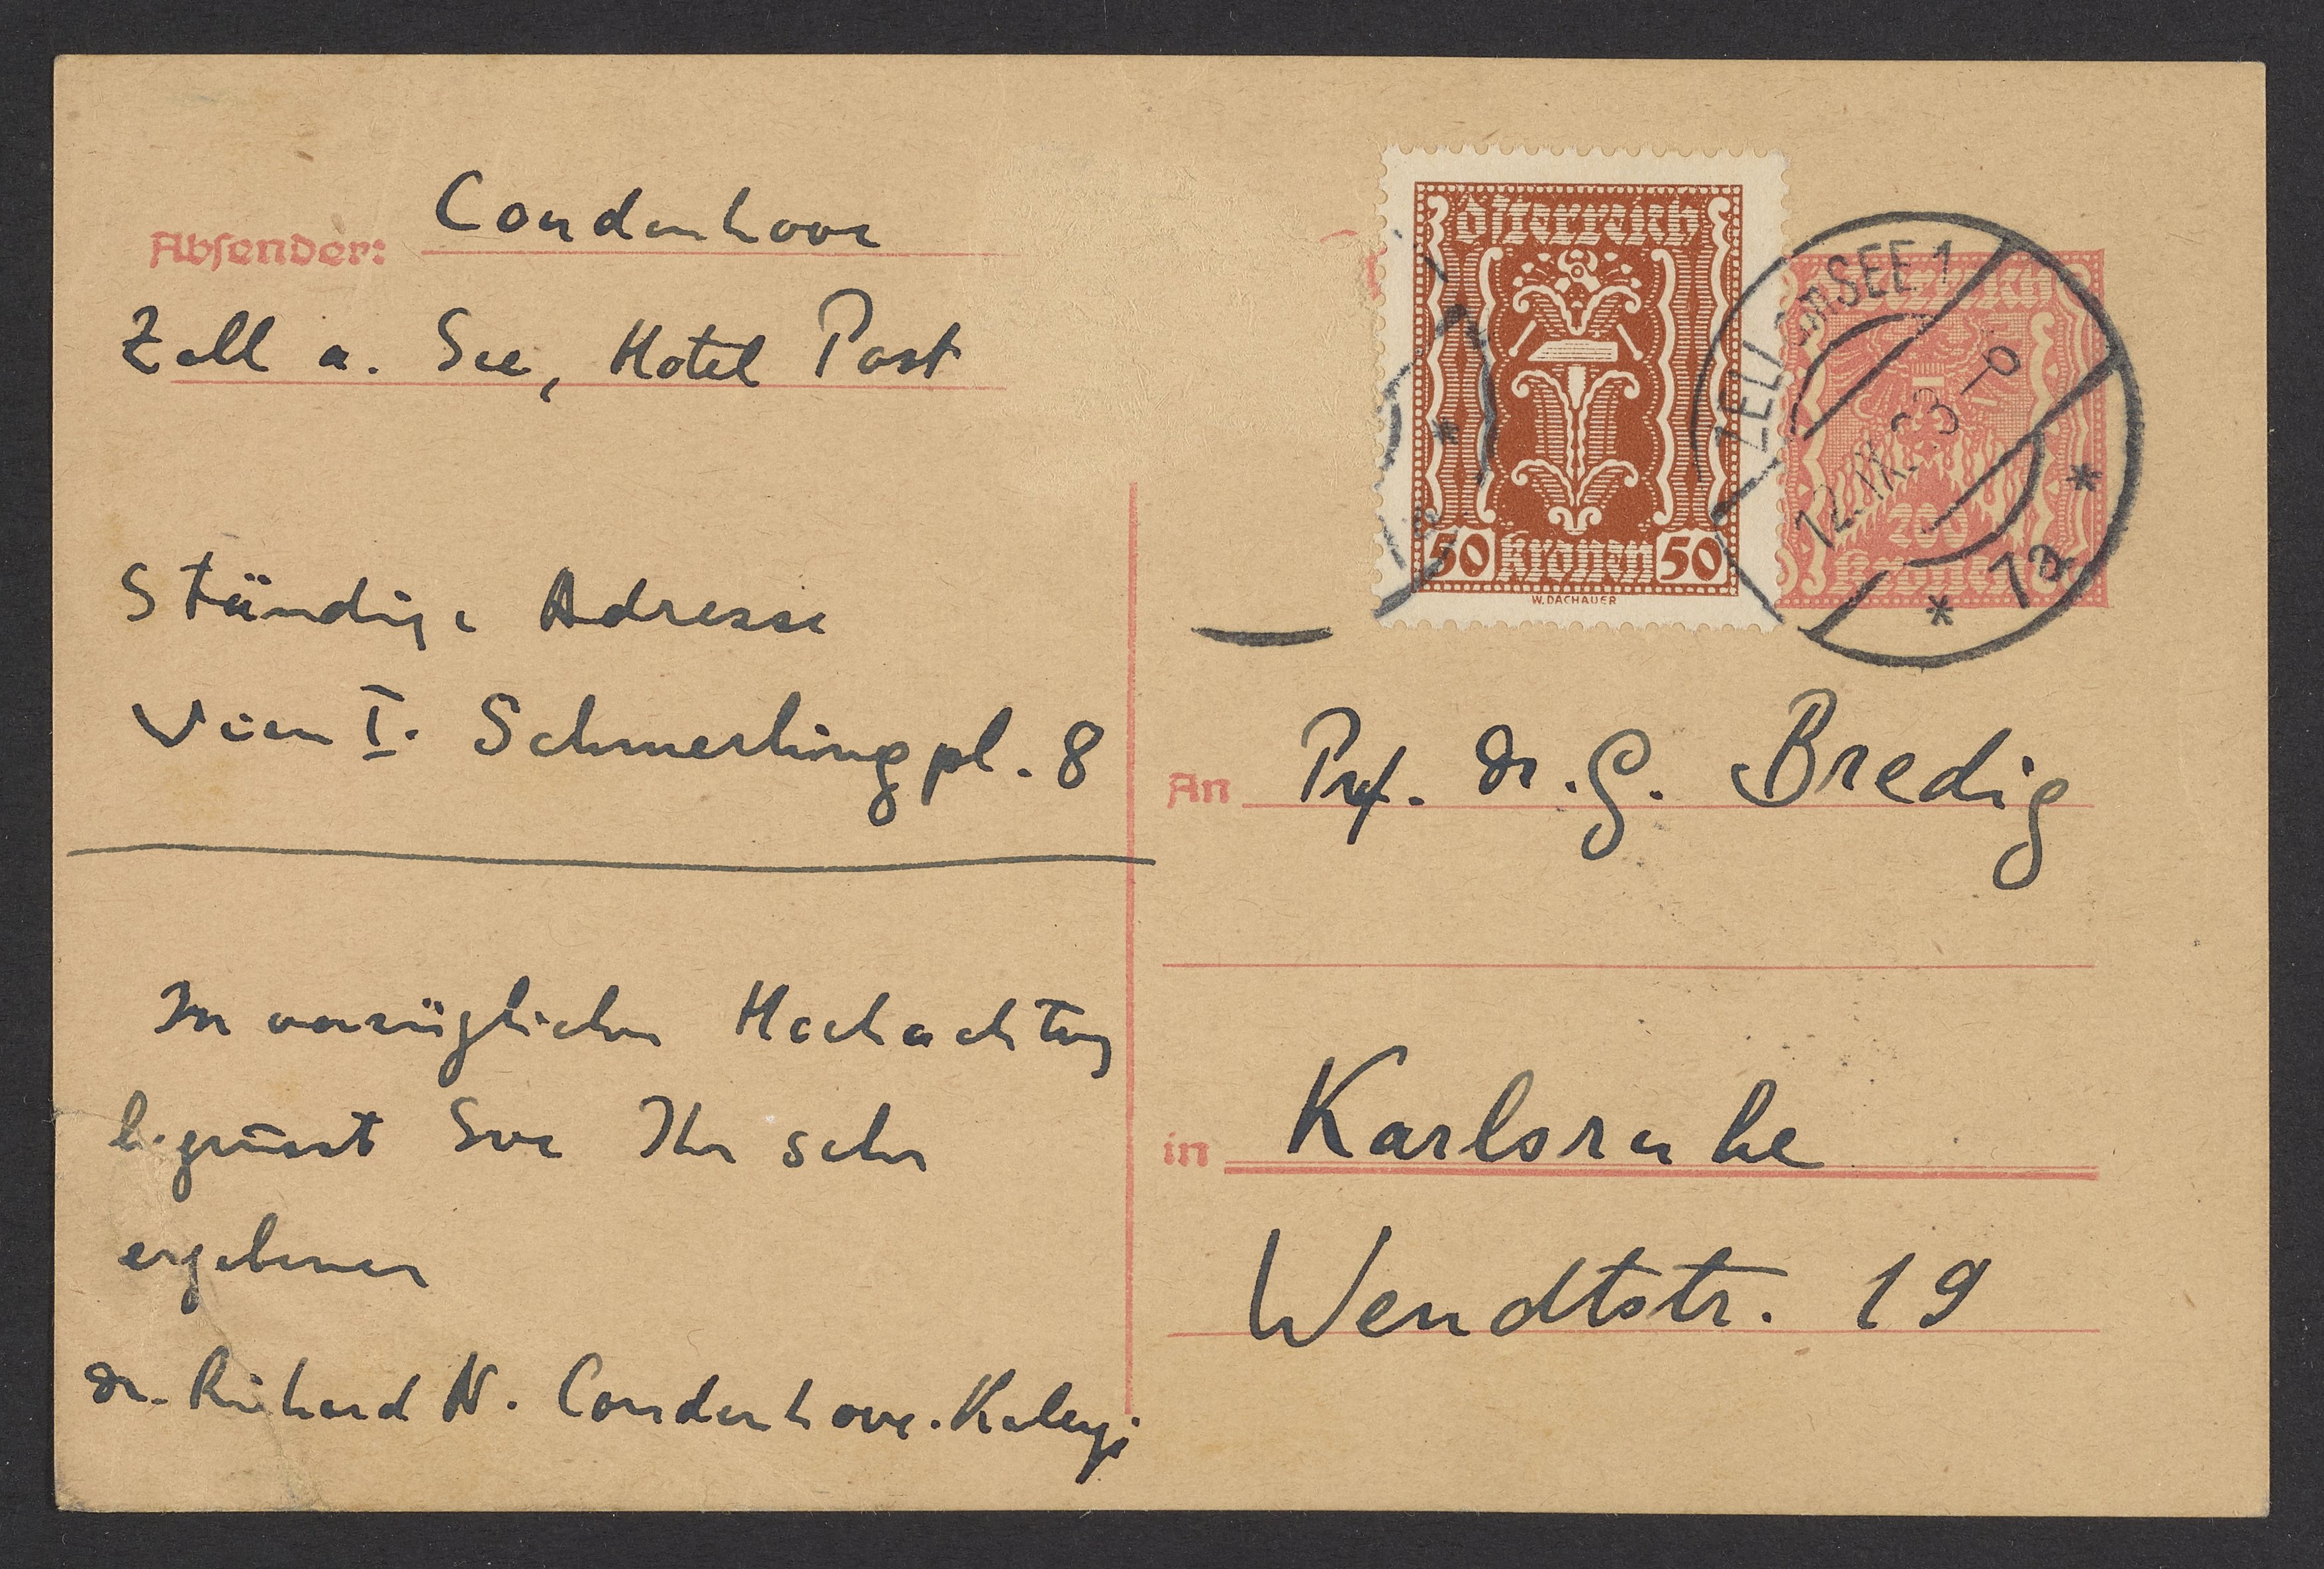 Absender: Coudenhove
Zell a. See, Hotel Post
Ständige Adresse
Wien I. Schmerlingpl. 8
In vorzüglicher Hochachtung
begrüsst Sie Ihr sehr
ergebener
Dr. Richard N. Coudenhove-Kalergi
Österreich
50 Kronen 50
W. DACHAUER
Österreich
200
Kronen
ZELL AM SEE 1
12.IX.23
1a
An Prof. Dr. G. Bredig
in Karlsruhe
Wendtstr. 19